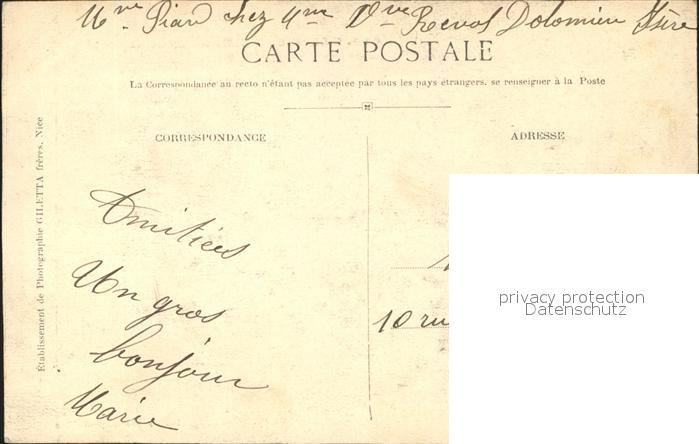 Mme Piard chez Mme Vve Revol Dolomieu Isère
CARTE POSTALE
La Correspondance au recto n'étant pas acceptée par tous les pays étrangers, se renseigner à la Poste
CORRESPONDANCE
ADRESSE
Établissement de Photographie GILETTA frères, Nice
Amitiées
Un gros
bonjour
Marie
10 ru
privacy protection
Datenschutz